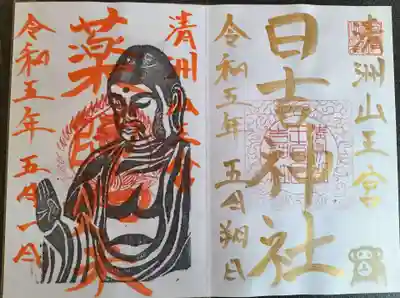 清洲山王宮
日吉神社
令和五年 五月朔日
清洲山王宮
薬師如来
令和五年 五月一日